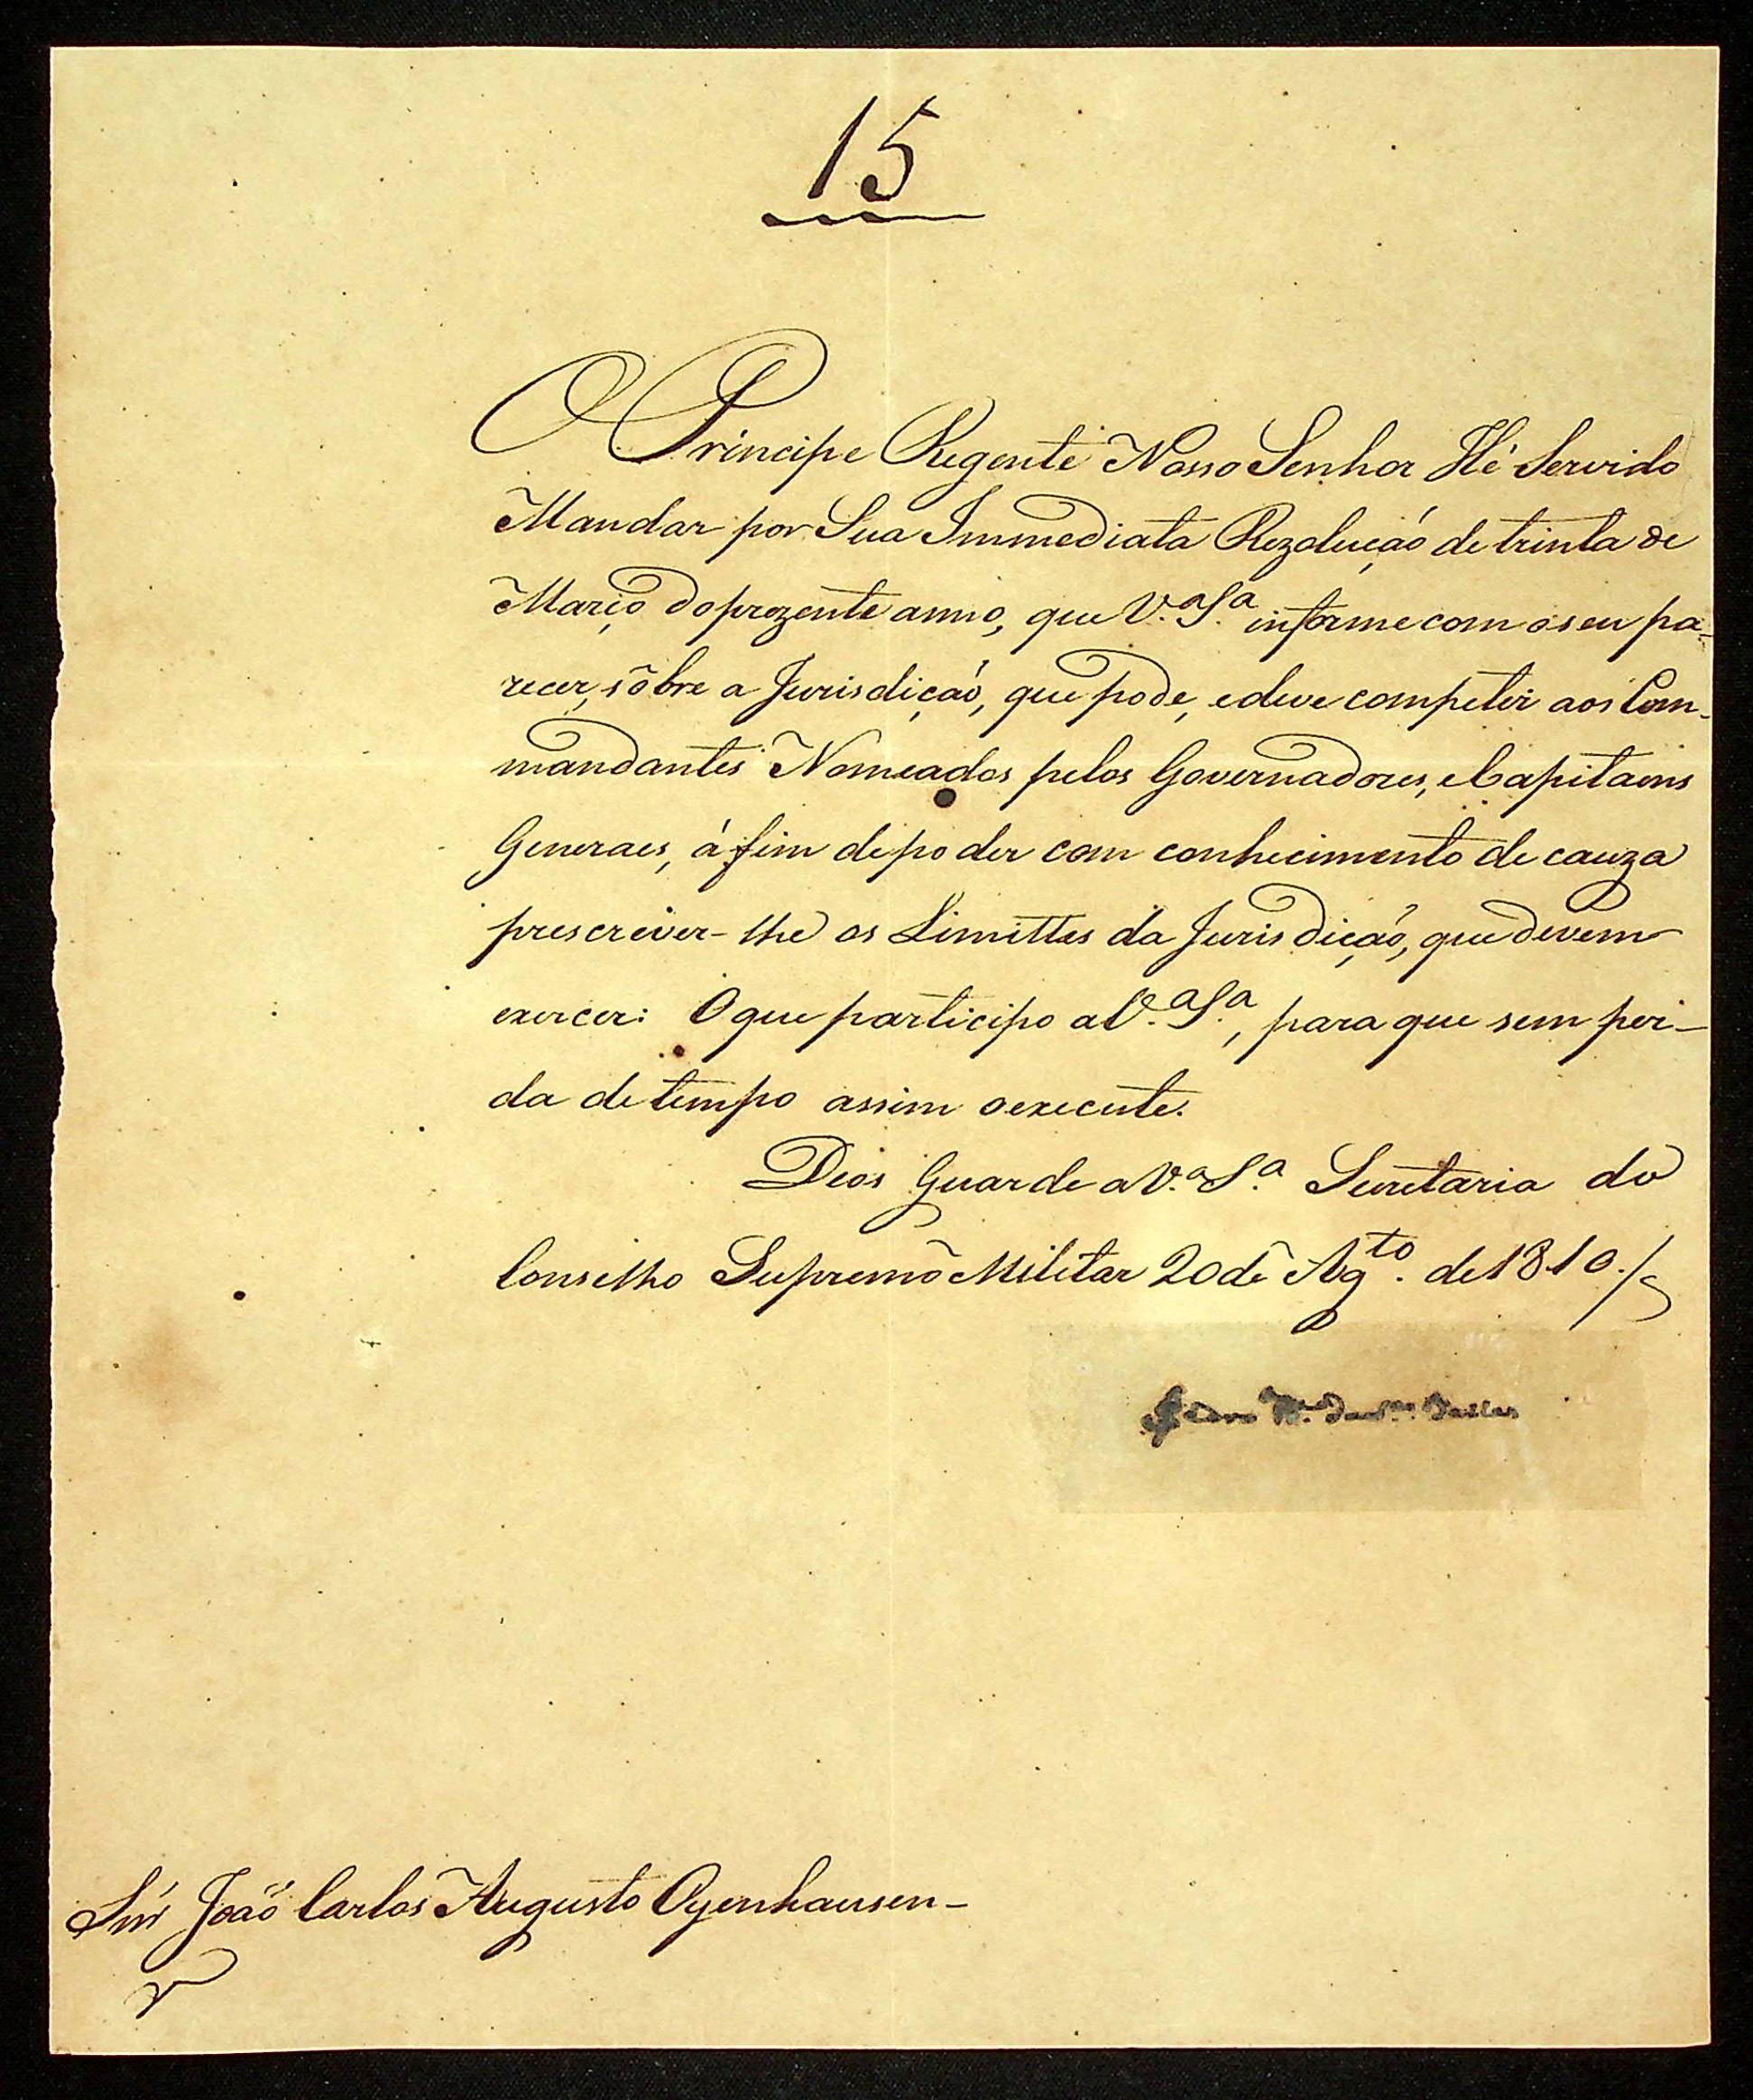 15
O Principe Regente Nosso Senhor Hé Servido
Mandar por Sua Immediata Rezolução de trinta de
Março do prezente anno, que V.ª S.ª informe com o seu pa-
recer, sôbre a Jurisdição, que pode, e deve competir aos Com-
mandantes Nomeados pelos Governadores, e Capitaens
Generaes, á fim de poder com conhecimento de cauza
prescrever-lhe os Limittes da Jurisdição, que devem
exercer: O que participo a V.ª S.ª, para que sem per-
da de tempo assim o execute.
Deos Guarde a V.ª S.ª Secretaria do
Conselho Supremo Militar 20 de Ag.to de 1810./
Snr João Carlos Augusto Oyenhausen-